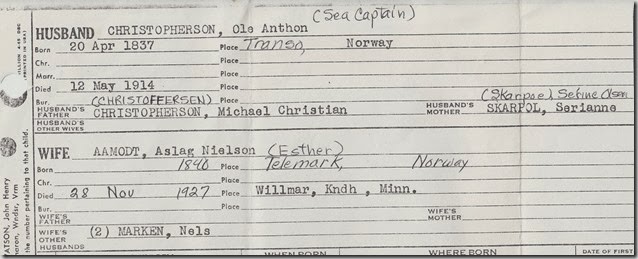 (Sea Captain)
HUSBAND CHRISTOPHERSON, Ole Anthon
Born 20 Apr 1837 Place Transo, Norway
Chr. Place
Marr. Place
Died 12 May 1914 Place
Bur. (CHRISTOFFERSEN) Place (Skarpoe) Serine Olsen
HUSBAND'S FATHER CHRISTOPHERSON, Michael Christian HUSBAND'S MOTHER SKARPOL, Serianne
HUSBAND'S OTHER WIVES
WIFE AAMODT, Aslag Nielson (Esther)
Born 1840 Place Telemark, Norway
Chr. Place
Died 28 Nov 1927 Place Willmar, Kndh , Minn.
Bur. Place
WIFE'S FATHER WIFE'S MOTHER
WIFE'S OTHER HUSBANDS (2) MARKEN, Nels
WHEN BORN WHERE BORN DATE OF FIRST
ATSON, John Henry
eron, Wndsr, Vrm
the number pertaining to that child.